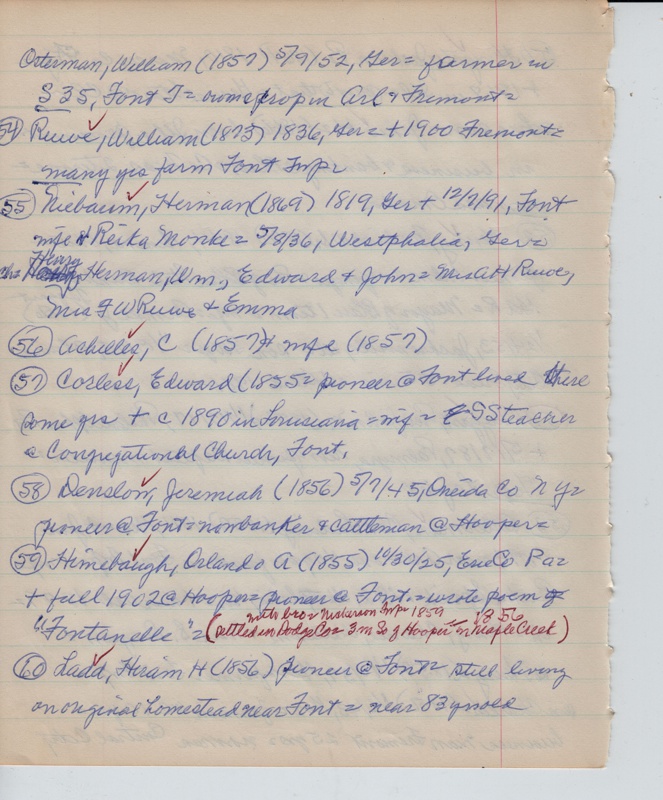 Osterman, William (1857) 5/9/52, Ger = farmer in
S 35, Font T = owns prop in Arl & Fremont =
54 Ruwe, William (1873) 1836, Ger = + 1900 Fremont =
many yrs farm Font Twpr
55 Niebaum, Herman (1869) 1819, Ger + 12/7/91, Font
mfe # Reika Monke = 5/8/36, Westphalia, Ger =
ch = Henry Herman, Wm., Edward & John = Mrs A H Ruwe,
Mrs F W Ruwe & Emma
56 Achilles, C (1857) # mfe (1857)
57 Corless, Edward (1855 = pioneer @ Font lived there
some yrs + c 1890 in Louisiana = mfg = SS teacher
@ Congregational Church, Font.
58 Denslow, Jeremiah (1856) 5/7/45, Oneida Co N Y =
pioneer @ Font = now banker & cattleman @ Hooper =
59 Himebaugh, Orlando A (1855) 10/30/25, Erie Co Pa =
+ fall 1902 @ Hooper = pioneer @ Font. = wrote poem
"Fontanelle" = (with bro = Nickerson Twp = 1859 1856
settled in Dodge Co = 3 m So of Hooper on Maple Creek)
60 Ladd, Hiram H (1856) pioneer @ Font = still living
on original homestead near Font = near 83 yrs old